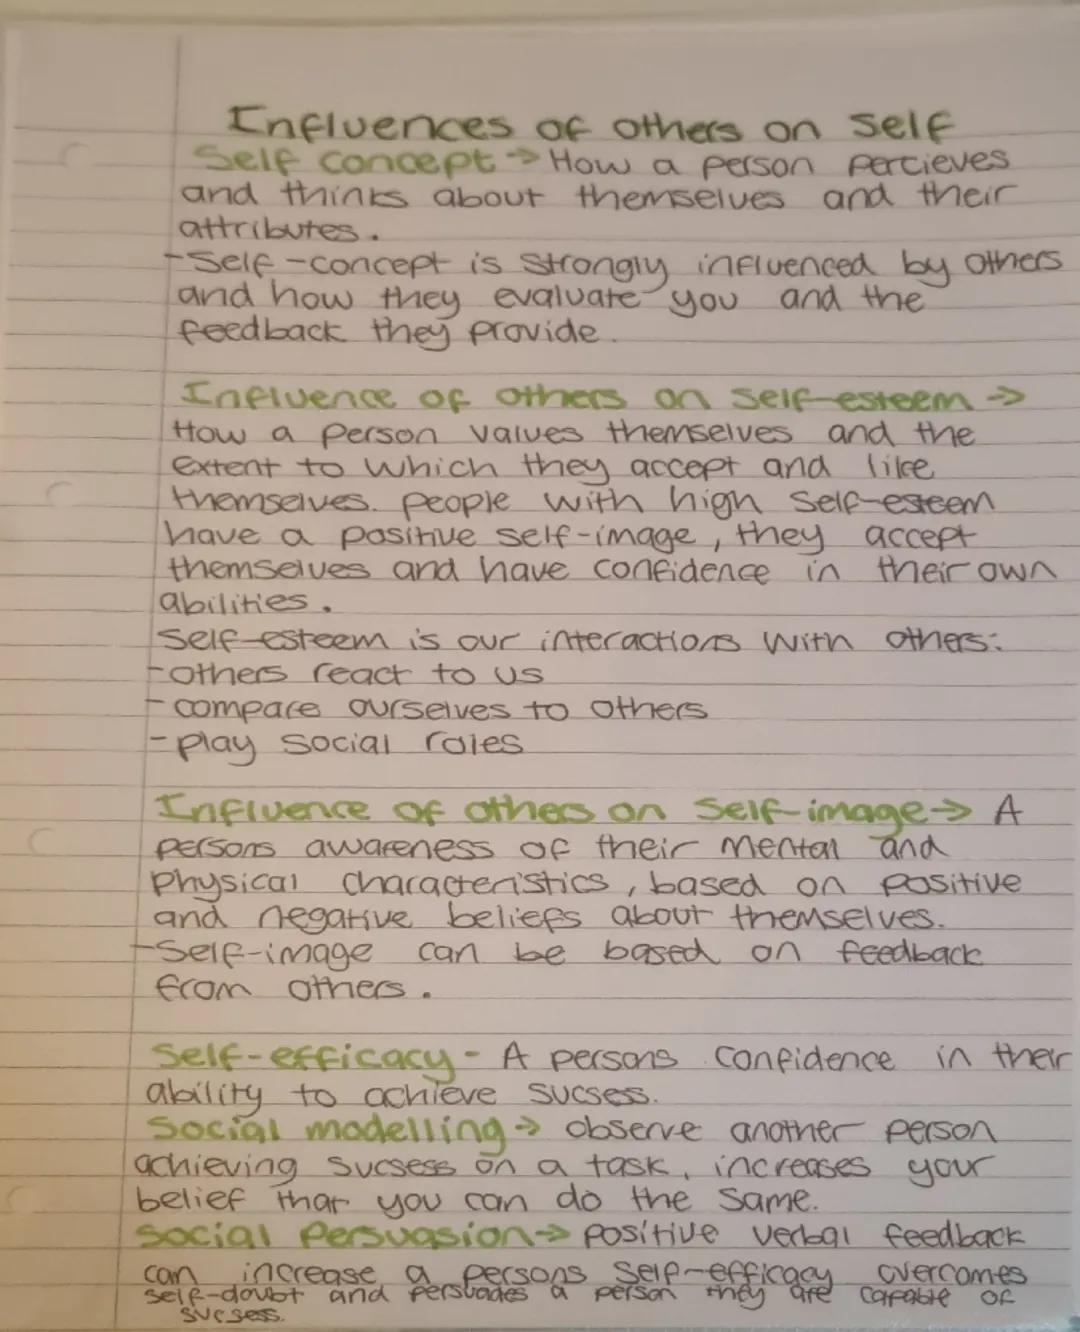 Influences of others on self
Self concept → How a person percieves
and thinks about themselves and their
attributes.
-Self-concept is strongly influenced by others
and how they evaluate you and the
feedback they provide.
Influence of others on self-esteem →
How a person values themselves and the
extent to which they accept and like
themselves. people with high self-esteem
have a positive self-image, they accept
themselves and have confidence in their own
abilities.
Self-esteem is our interactions with others:
-others react to us
-compare ourselves to others
-play social roles
Influence of others on self-image → A
persons awareness of their mental and
physical characteristics, based on positive
and negative beliefs about themselves.
-Self-image can be based on feedback
from others.
Self-efficacy - A persons confidence in their
ability to achieve sucsess.
Social modelling → observe another person
achieving sucsess on a task, increases your
belief that you can do the same.
Social Persuasion → positive verbal feedback
can increase a persons self-efficacy overcomes
self-doubt and persuades a person they are capable of
sucsess.